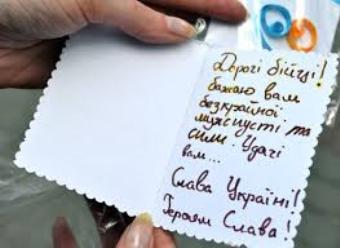 Дорогі бійці!
бажаю вам
безкрайної
мужності та
сили. Удачі
вам...
Слава Україні!
Героям Слава!